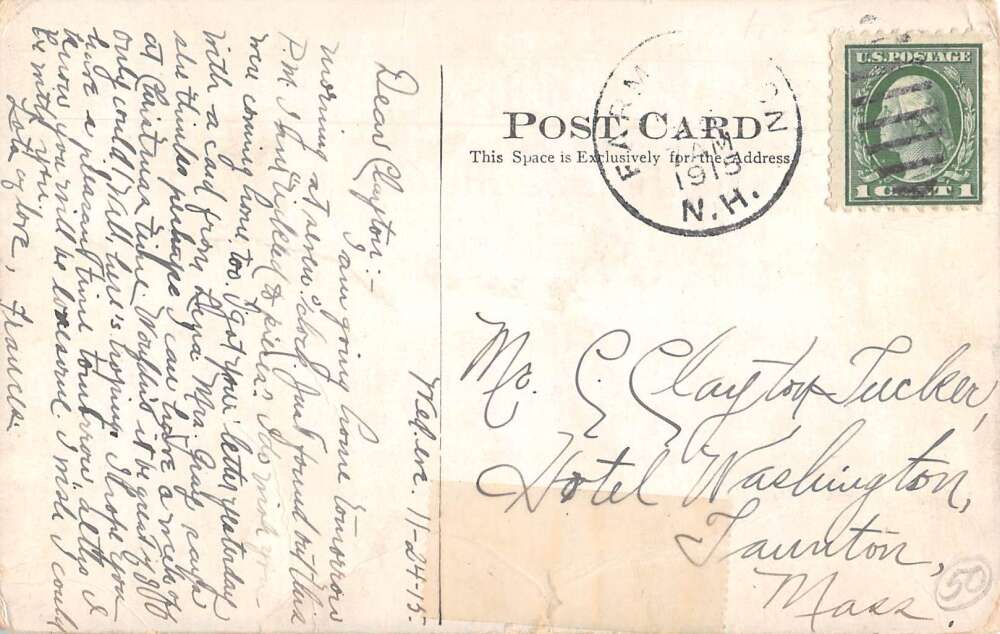 Wed. eve. 11-24-15
Dear Clayton:-
I am going home tomorrow
morning at seven o'clock. Just found out this
P.M. I am tickled to pieces. I do wish you
were coming home, too. I got your letter yesterday
with a card from Mrs. Gray says
she thinks perhaps I can have a week off
at Christmas time. Won't it be great if you
only could? Well, here's hoping. I hope you
have a pleasant time tomorrow, altho I
know you will be lonesome. I wish I could
be with you.
Lots of love,
Frances.
POST CARD
This Space is Exclusively for the Address
FARM ON
AM
1915
N.H.
U.S. POSTAGE
1 CENT 1
Mr. C. Clayton Tucker,
Hotel Washington,
Taunton,
Mass.
50